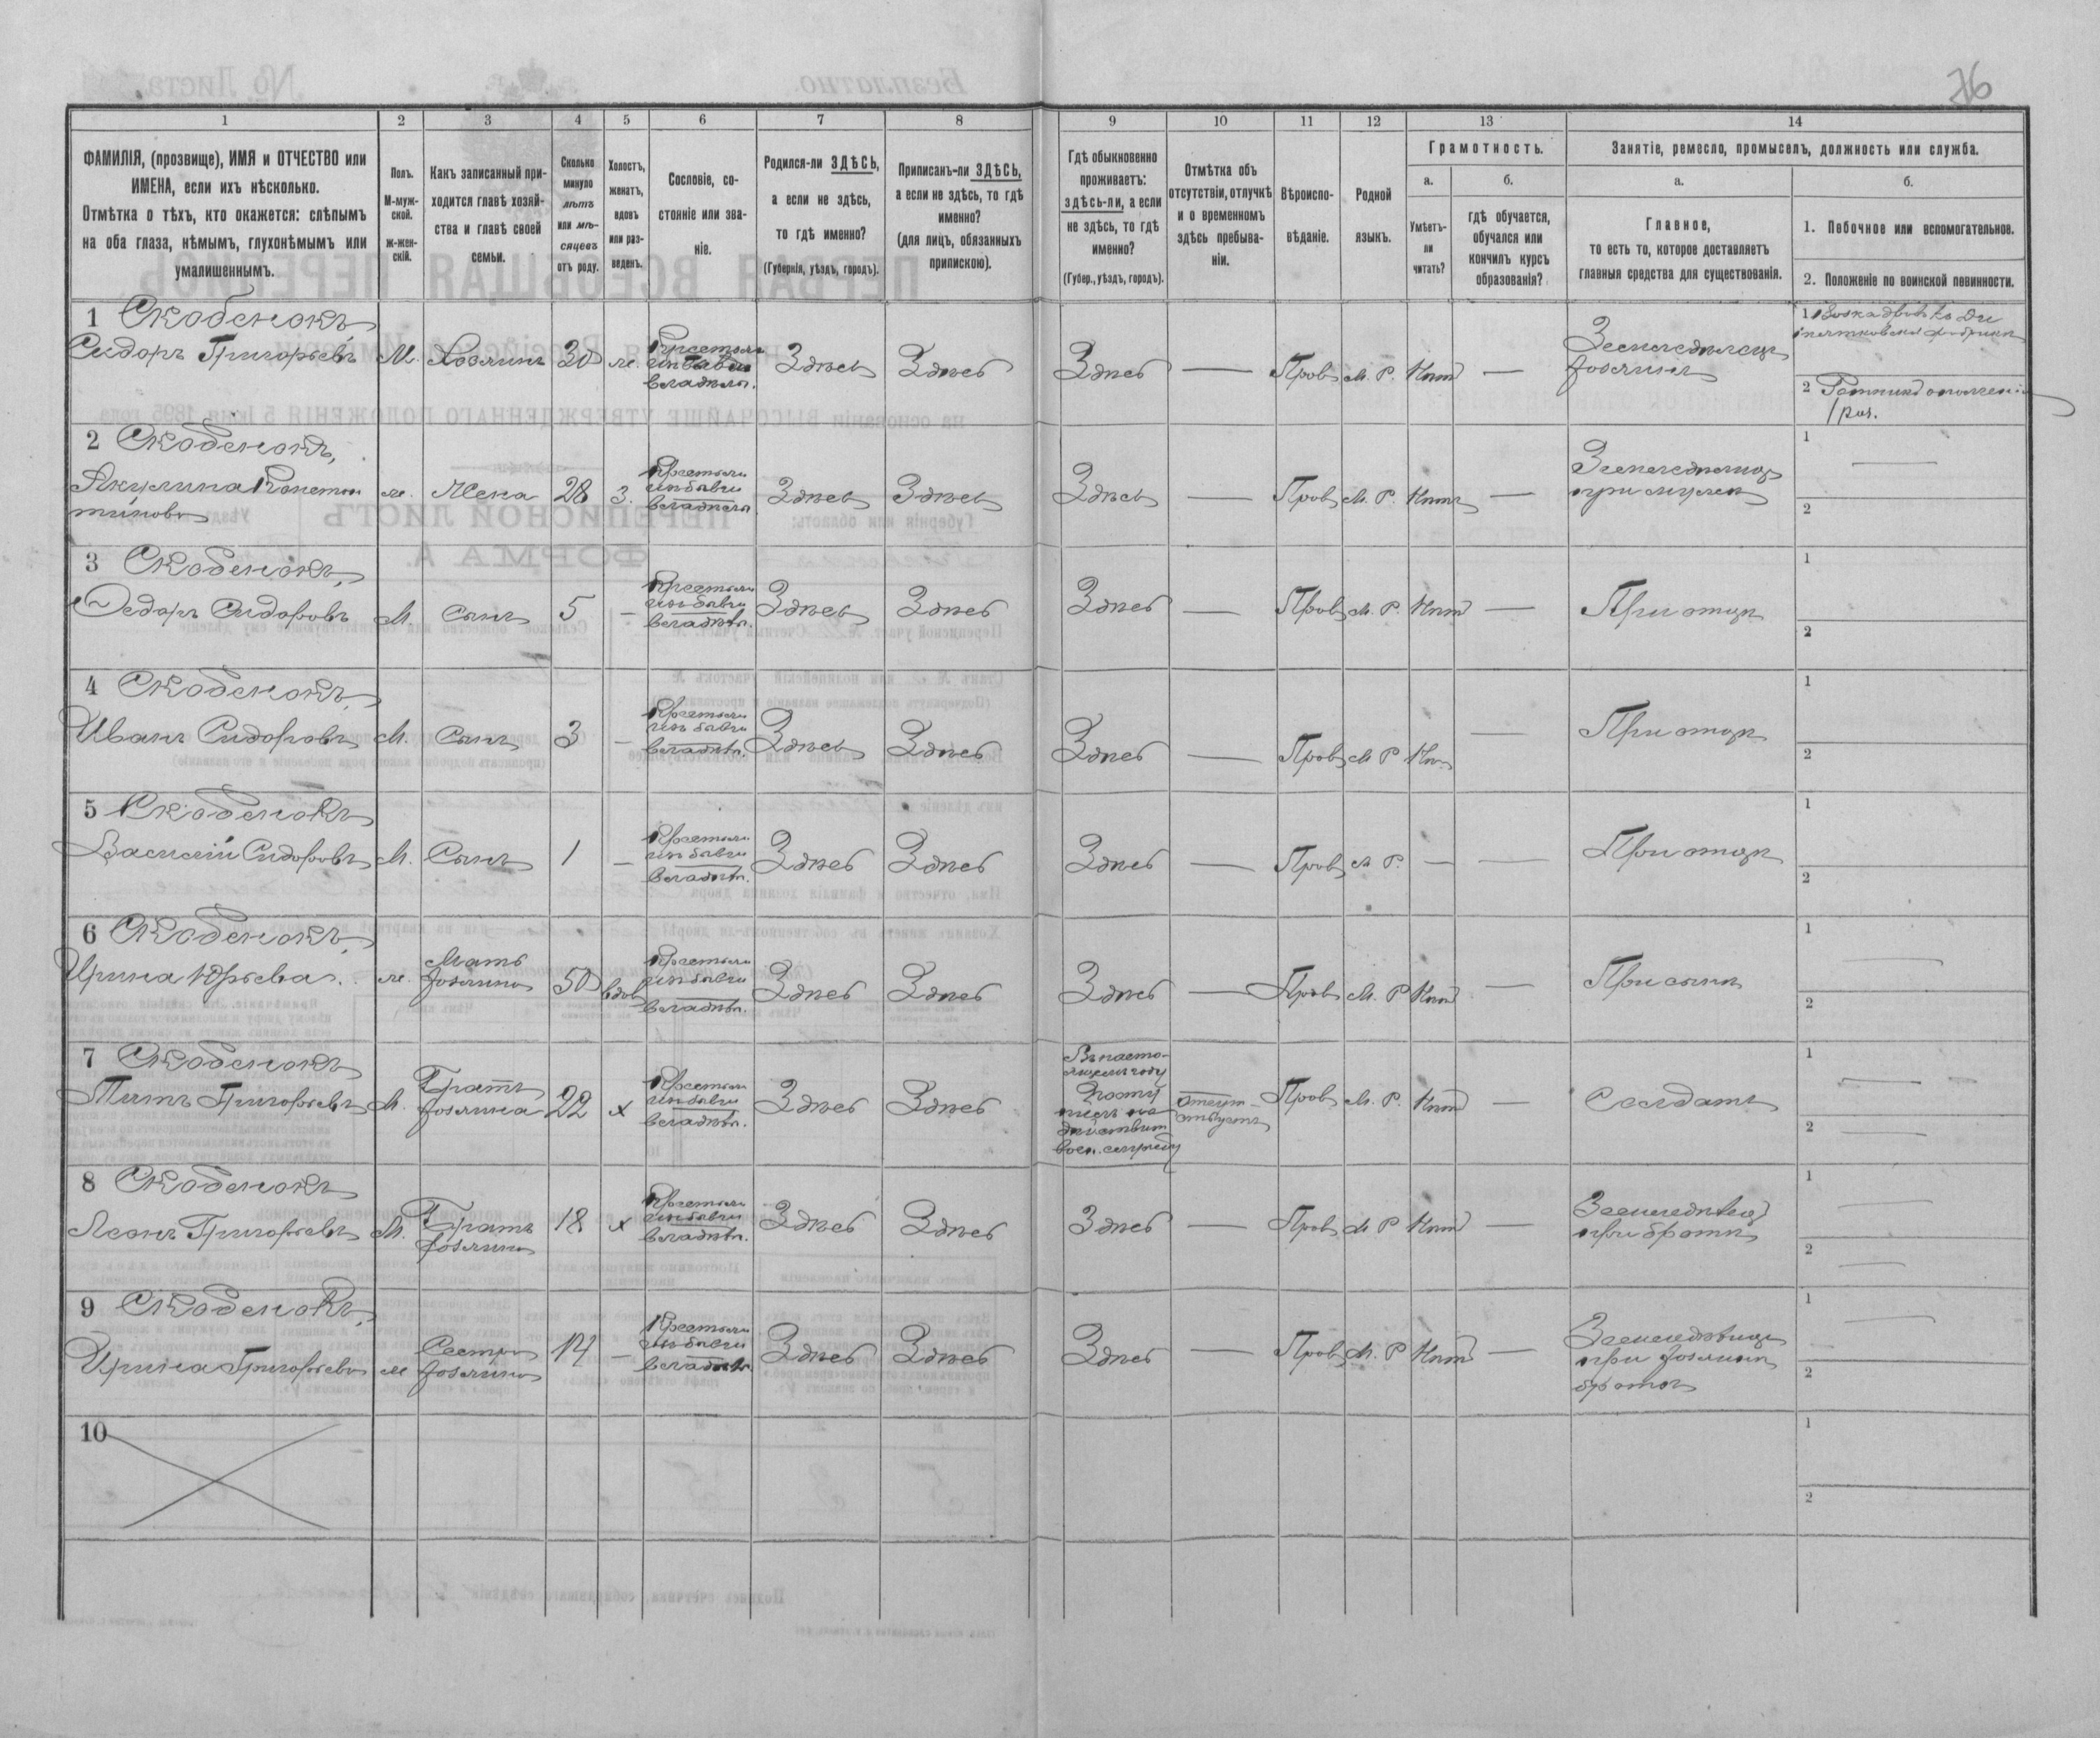 76
1 2 3 4 5 6 7 8 9 10 11 12 13 14
ФАМИЛІЯ, (прозвище), ИМЯ и ОТЧЕСТВО или
ИМЕНА, если ихъ нѣсколько.
Отмѣтка о тѣхъ, кто окажется: слѣпымъ
на оба глаза, нѣмымъ, глухонѣмымъ или
умалишеннымъ.
Полъ.
М-муж-
ской.
Ж-жен-
скій.
Какъ записанный при-
ходится главѣ хозяй-
ства и главѣ своей
семьи.
Сколько
минуло
лѣтъ
или мѣ-
сяцевъ
отъ роду.
Холостъ,
женатъ,
вдовъ
или раз-
веденъ.
Сословіе, со-
стояніе или зва-
ніе.
Родился-ли ЗДѢСЬ,
а если не здѣсь,
то гдѣ именно?
(Губернія, уѣздъ, городъ).
Приписанъ-ли ЗДѢСЬ,
а если не здѣсь, то гдѣ
именно?
(для лицъ, обязанныхъ
припискою).
Гдѣ обыкновенно
проживаетъ:
здѣсь-ли, а если
не здѣсь, то гдѣ
именно?
(Губер., уѣздъ, городъ).
Отмѣтка объ
отсутствіи, отлучкѣ
и о временномъ
здѣсь пребыва-
ніи.
Вѣроиспо-
вѣданіе.
Родной
языкъ.
Грамотность.
а.
Умѣетъ-
ли
читать?
б.
гдѣ обучается,
обучался или
кончилъ курсъ
образованія?
Занятіе, ремесло, промыселъ, должность или служба.
а.
Главное,
то есть то, которое доставляетъ
главныя средства для существованія.
б.
1. Побочное или вспомогательное.
2. Положеніе по воинской повинности.
1 Скобенокъ,
Сидоръ Григорьевъ М. Хозяинъ 30 ж. Крестьян
инъ бывш
владѣл. Здѣсь Здѣсь Здѣсь — Прав М. Р. Нѣт — Земледѣлец
хозяинъ
1
2 Ратникъ ополчені
1 раз.
2 Скобенокъ,
Акулина Констан
тинова ж. Жена 28 З. Крестьян
инъ бывш
владѣл. Здѣсь Здѣсь Здѣсь — Прав М. Р. Нѣтъ — Земледѣлица
при мужѣ
1 —
2
3 Скобенокъ,
Ѳедоръ Сидоровъ М. сынъ 5 — Крестьян
инъ бывш
владѣл. Здѣсь Здѣсь Здѣсь — Прав М. Р. Нѣт — При отцѣ
1
2
4 Скобенокъ,
Иванъ Сидоровъ М. Сынъ 3 — Крестьян
инъ бывш
владѣл. Здѣсь Здѣсь Здѣсь — Прав М. Р. Нѣ — При отцѣ
1
2
5 Скобенокъ
Василій Сидоровъ М. Сынъ 1 — Крестьян
инъ бывш
владѣл. Здѣсь Здѣсь Здѣсь — Прав М. Р. — — При отцѣ
1
2
6 Скобенокъ,
Ирина Юрьева. ж. Мать
хозяина 50 вдов Крестьян
инъ бывш
владѣл. Здѣсь Здѣсь Здѣсь — Прав М. Р. Нѣт — При сынѣ
1 —
2
7 Скобенокъ
Титъ Григорьевъ М. Братъ
хозяина 22 х Крестьян
инъ бывш
владѣл. Здѣсь Здѣсь Въ насто-
ящемъ году
на
действит
воен. службу отсут
ствуетъ Прав М. Р. Нѣт — Солдатъ
1 —
2 —
8 Скобенокъ
Леонъ Григорьевъ М. Братъ
хозяина 18 х Крестьян
инъ бывш
владѣл. Здѣсь Здѣсь Здѣсь — Прав М. Р. Нѣт — Земледѣлец
при братѣ
1 —
2 —
9 Скобенокъ,
Ирина Григорьева ж Сестра
хозяина 14 — Крестьян
инъ бывш
владѣл. Здѣсь Здѣсь Здѣсь — Прав М. Р. Нѣт — Земледѣлица
при хозяинѣ
братѣ
1 —
2 —
10
1
2